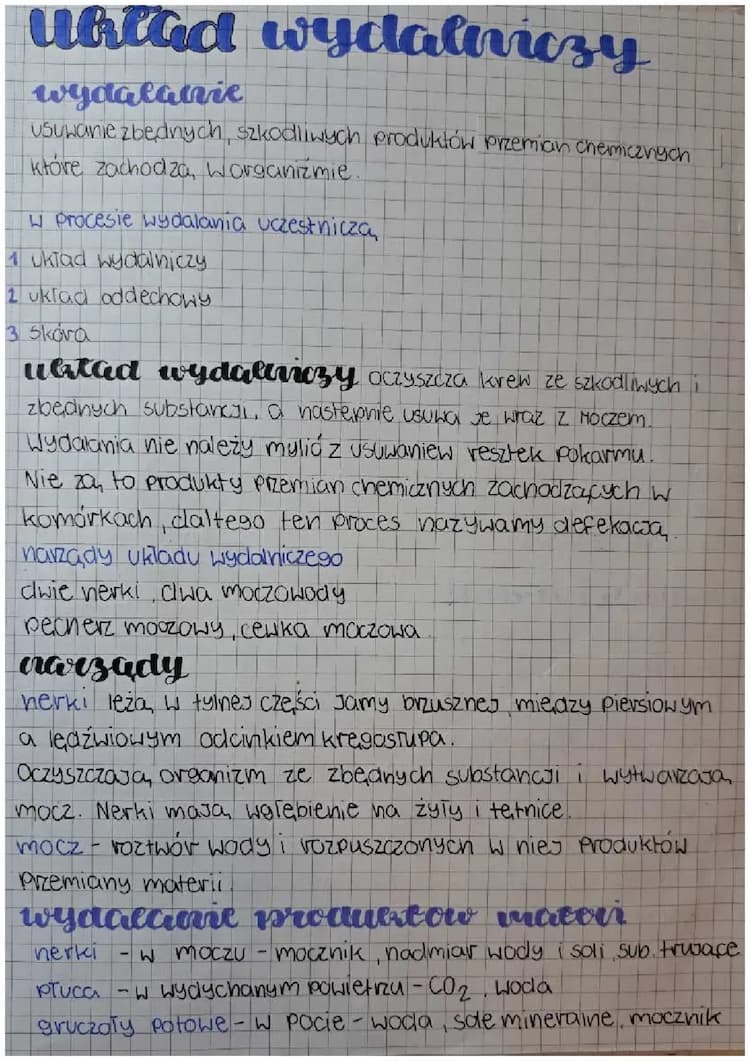 układ wydalniczy
wydalanie
usuwanie zbędnych, szkodliwych produktów przemian chemicznych
które zachodzą w organizmie.
w procesie wydalania uczestniczą
1 układ wydalniczy
2 układ oddechowy
3 skóra
układ wydalniczy oczyszcza krew ze szkodliwych i
zbędnych substancji, a następnie usuwa je wraz z moczem.
Wydalania nie należy mylić z usuwaniew resztek pokarmu.
Nie zą to produkty przemian chemicznych zachodzących w
komórkach, daltego ten proces nazywamy defekacją.
narządy układu wydalniczego
dwie nerki, dwa moczowody
pęcherz moczowy, cewka moczowa
narządy
nerki leżą w tylnej części jamy brzusznej, między piersiowym
a lędźwiowym odcinkiem kręgosłupa.
Oczyszczają organizm ze zbędnych substancji i wytwarzają
mocz. Nerki mają wgłębienie na żyły i tętnice.
mocz - roztwór wody i rozpuszczonych w niej produktów
przemiany materii.
wydalanie produktów materi
nerki - w moczu - mocznik, nadmiar wody i soli, sub. trujące
płuca - w wydychanym powietrzu - CO₂, woda
gruczoły potowe - w pocie - woda, sole mineralne, mocznik